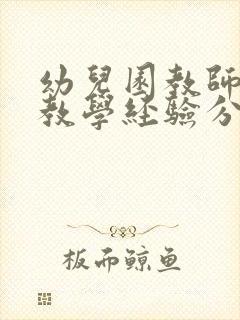 幼兒園教師
教學經驗分
板而鲸鱼